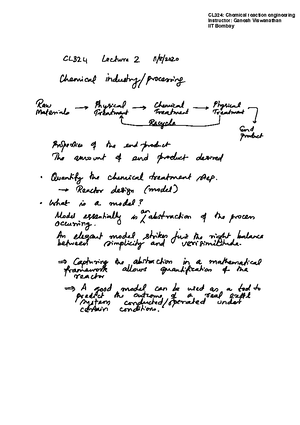 CL324: Chemical reaction engineering
Instructor: Ganesh Viswanathan
IIT Bombay
CL324 Lecture 2
Chemical industry/processing
Raw Materials → Physical Treatment → Chemical Treatment → Physical Treatment
Recycle
End product
Properties of the end product
The amount of end product desired
• Quantify the chemical treatment step.
→ Reactor design (model)
• What is a model?
Model essentially is an abstraction of the process
occurring.
An elegant model strikes just the right balance
between simplicity and verisimilitude.
⇒ Capturing the abstraction in a mathematical
framework allows quantification of the
reactor
⇒ A good model can be used as a tool to
predict the outcome of a real expt
system conducted/operated under
certain conditions.